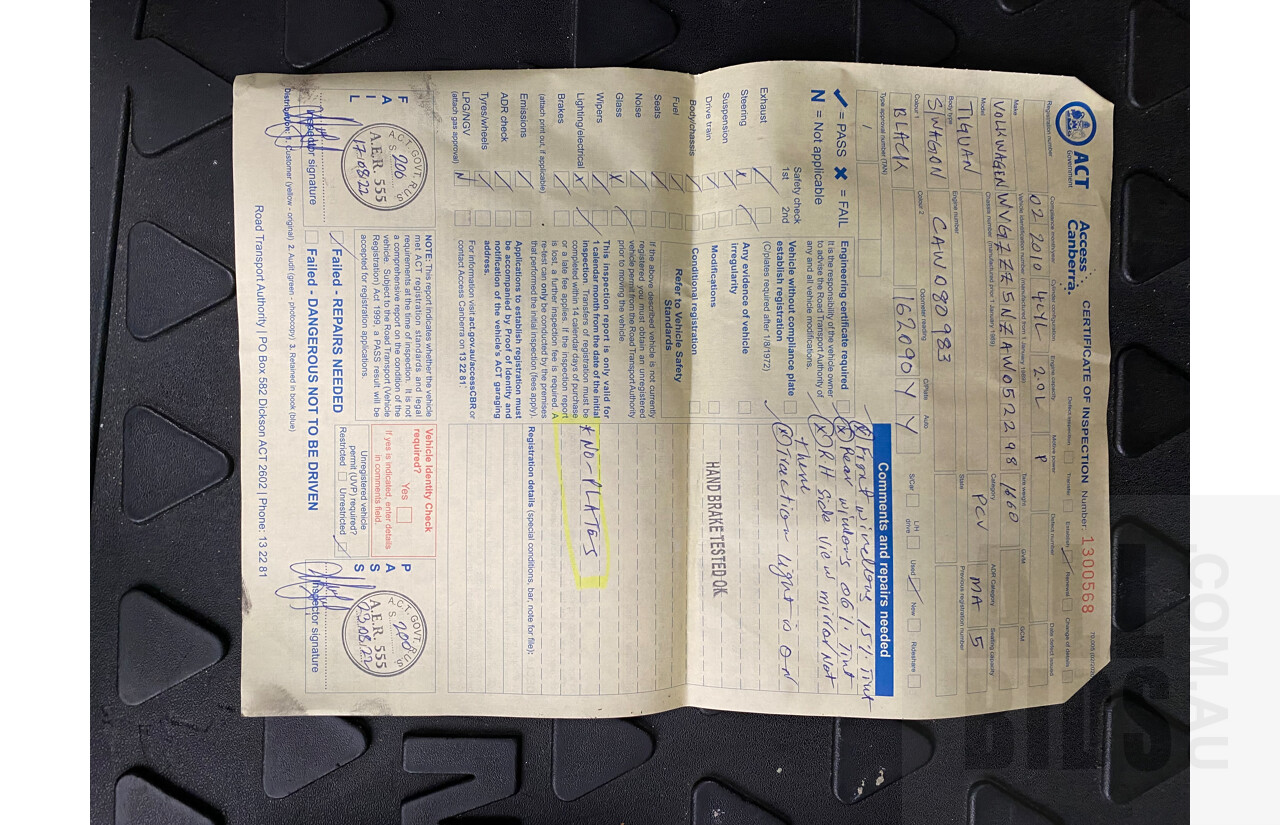 ACT
Government
Access
Canberra.
CERTIFICATE OF INSPECTION Number: 1300568
Registration number
Compliance month/year
02 2010
Cylinder configuration
4CYL
Engine capacity
2.0L
Motive power
P
Defect inspection
Transfer
Establish
Renewal
Change of details
Make
VOLKWAGEN
Vehicle identification number
WVGZZZ5NZAW052298
Tare weight
1660
GVM
GCM
Defect number
Date defect issued
Model
TIGUAN
Chassis number
Category
PCV
ADR Category
MA
Seating capacity
5
Body type
SWAGON
Engine number
CAW080983
State
Previous registration number
Colour 1
BLACK
Colour 2
Odometer reading
162090
C/Plate
Y
Auto
Y
S/Car
L/H drive
Used
New
Rideshare
Type approval number (TAN)
✓ = PASS ✖ = FAIL
N = Not applicable
Safety check
1st 2nd
Exhaust
Steering
Suspension
Drive train
Body/chassis
Fuel
Seats
Noise
Glass
Wipers
Lighting/electrical
Brakes
(attach print out, if applicable)
Emissions
ADR check
Tyres/wheels
LPG/NGV
(attach gas approval)
N
Engineering certificate required
It is the responsibility of the vehicle owner
to advise the Road Transport Authority of
any and all vehicle modifications.
Vehicle without compliance plate
establish registration
(C/plates required after 1/8/1972)
Any evidence of vehicle
irregularity
Modifications
Conditional registration
Refer to Vehicle Safety
Standards
If the above described vehicle is not currently
registered you must obtain an unregistered
vehicle permit from the Road Transport Authority
prior to moving the vehicle.
This inspection report is only valid for
1 calendar month from the date of the initial
inspection. Transfers of registration must be
completed within 14 calendar days of purchase
or a late fee applies. If the inspection report
is lost, a further inspection fee is required. A
re-test can only be conducted by the premises
that performed the initial inspection (fees apply).
Applications to establish registration must
be accompanied by Proof of Identity and
notification of the vehicle's ACT garaging
address.
For information visit act.gov.au/accessCBR or
contact Access Canberra on 13 22 81
Comments and repairs needed
Front windows 15% Tint
Rear windows 06% Tint
RH Side view mirror Not
there
Traction light is ON
HAND BRAKE TESTED OK
* NO-PLATES
Registration details (special conditions, bar, note for file):
FAIL
A.C.T. GOVT.
200
A.E.R. 555
17-08-22
Inspector signature
NOTE: This report indicates whether the vehicle
met ACT registration standards and legal
requirements at the time of inspection. It is not
a comprehensive report on the condition of the
vehicle. Subject to the Road Transport (Vehicle
Registration) Act 1999, a PASS result will be
accepted for registration applications.
Failed - REPAIRS NEEDED
Failed - DANGEROUS NOT TO BE DRIVEN
Vehicle Identity Check
required?
Yes
If yes is indicated, enter details
in comments field.
Unregistered vehicle
permit (UVP) required?
Restricted Unrestricted
PASS
A.C.T. GOVT.
200
A.E.R. 555
23-08-22
Inspector signature
Distribution: 1. Customer (yellow - original) 2. Audit (green - photocopy) 3. Retained in book (blue)
Road Transport Authority | PO Box 582 Dickson ACT 2602 | Phone: 13 22 81
BIDS
.COM.AU